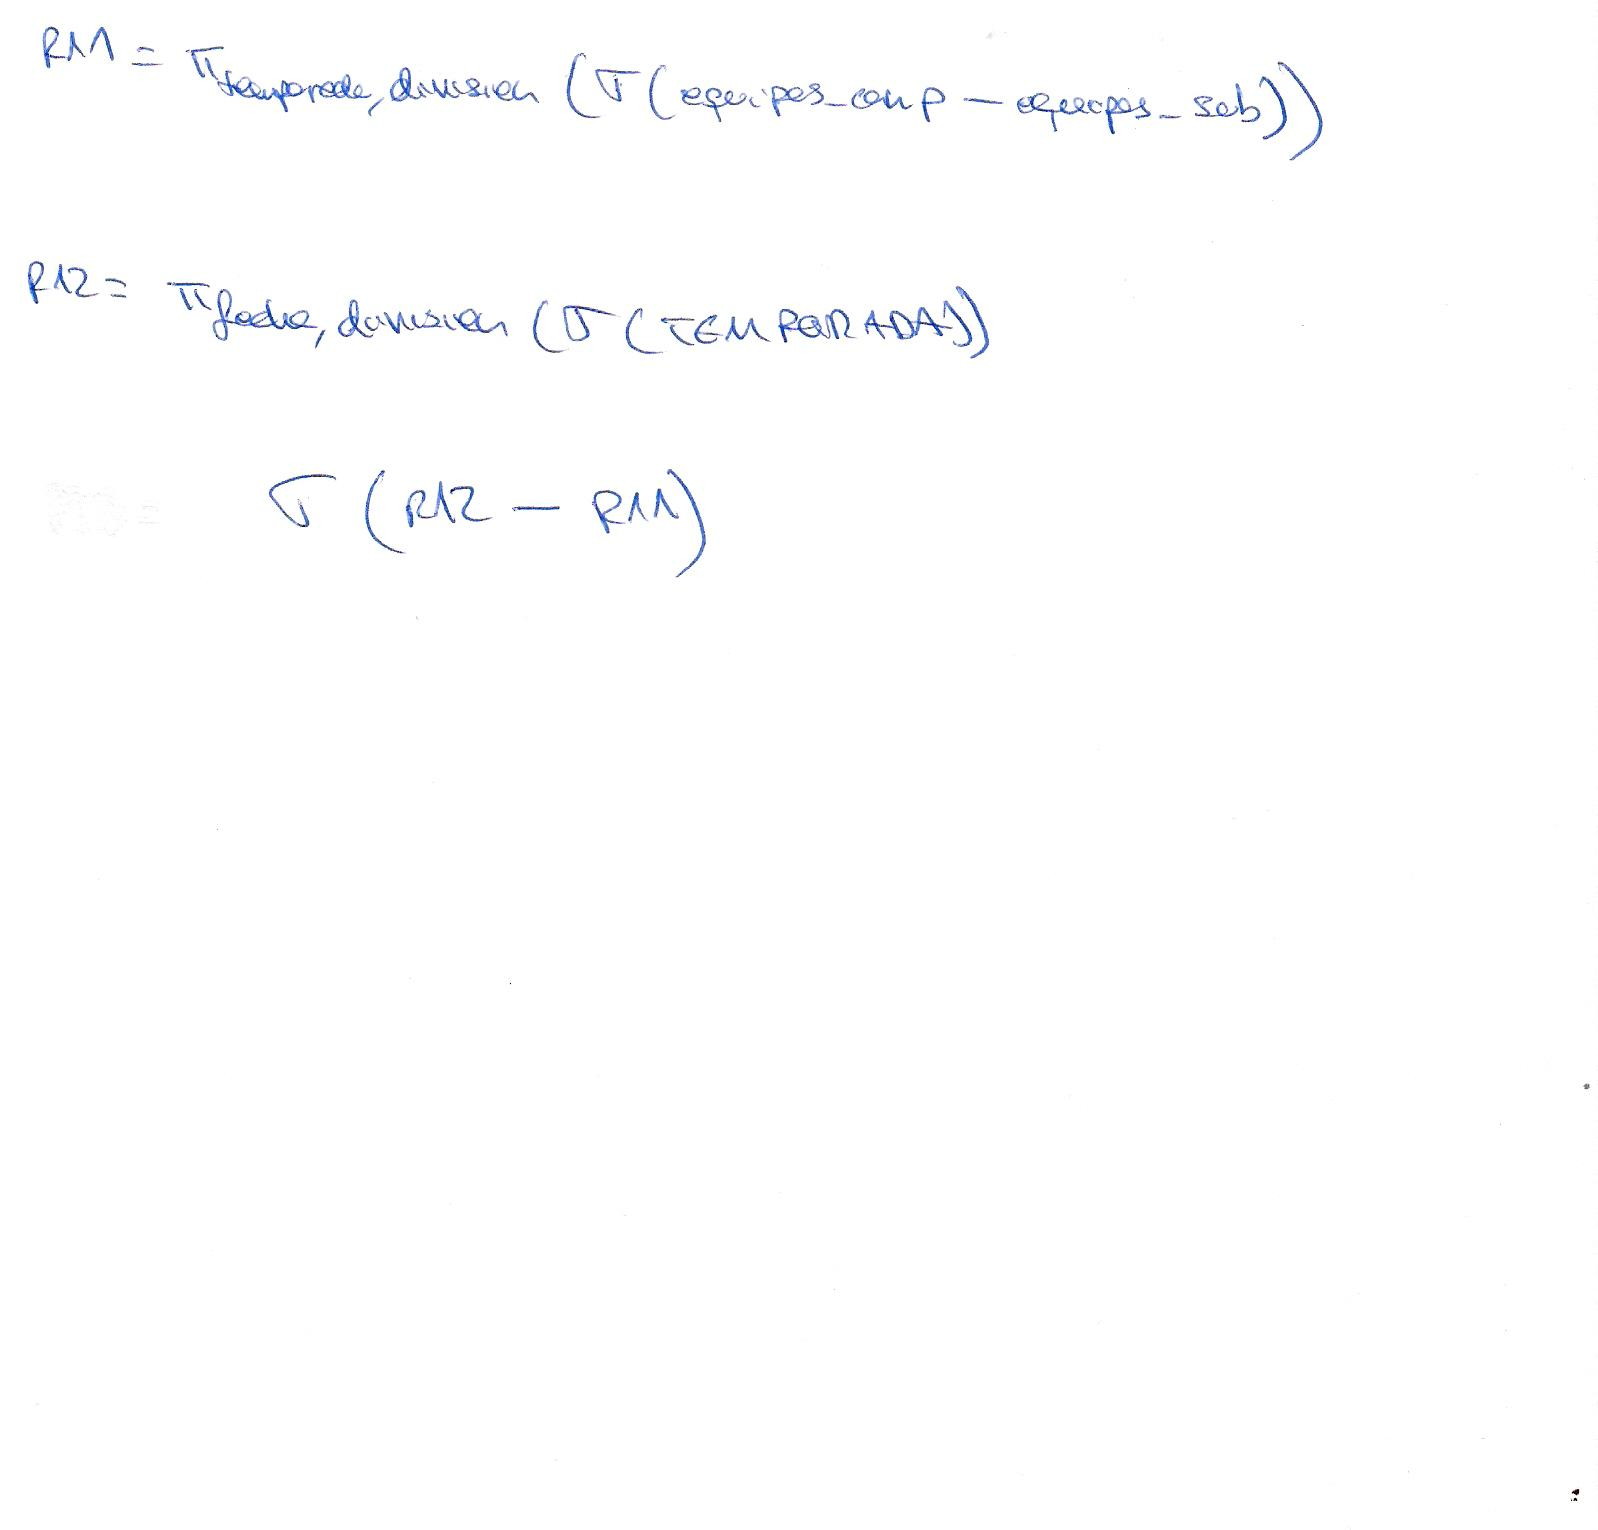 R11 = π temporada, division (σ(equipos_comp – equipos_sub))
R12 = π fecha, division (σ(TEMPORADA))
σ (R12 – R11)